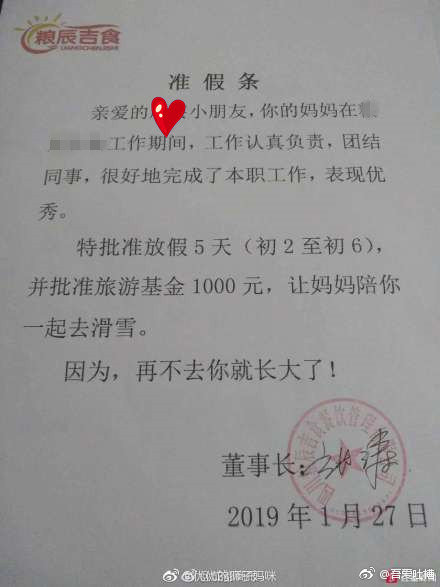 粮辰吉食
准假条
亲爱的 小朋友，你的妈妈在
工作期间，工作认真负责，团结
同事，很好地完成了本职工作，表现优
秀。
特批准放假5天（初2至初6），
并批准旅游基金1000元，让妈妈陪你
一起去滑雪。
因为，再不去你就长大了！
董事长：
2019年1月27日
@吾爱吐槽